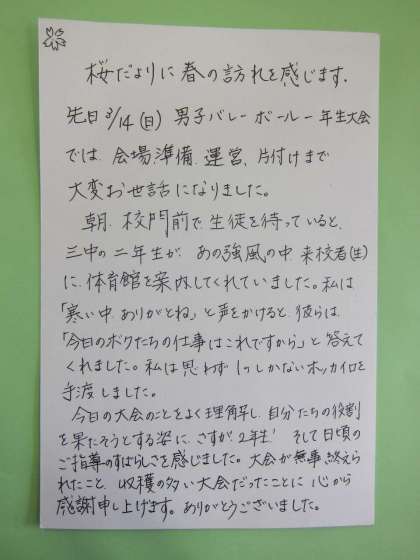 桜だよりに春の訪れを感じます.
先日3/14(日)男子バレーボール一年生大会
では、会場準備、運営、片付けまで
大変お世話になりました。
朝、校門前で生徒を待っていると、
三中の二年生が、あの強風の中、来校者(生)
に体育館を案内してくれていました。私は
「寒い中、ありがとね」と声をかけると、彼らは、
「今日のボクたちの仕事はこれですから」と答えて
くれました。私は思わず1つしかないホッカイロを
手渡しました。
今日の大会のことをよく理解し、自分たちの役割
を果たそうとする姿に、さすが、2年生！そして日頃の
ご指導のすばらしさを感じました。大会が無事終えら
れたこと、収穫の多い大会だったことに心から
感謝申し上げます。ありがとうございました。